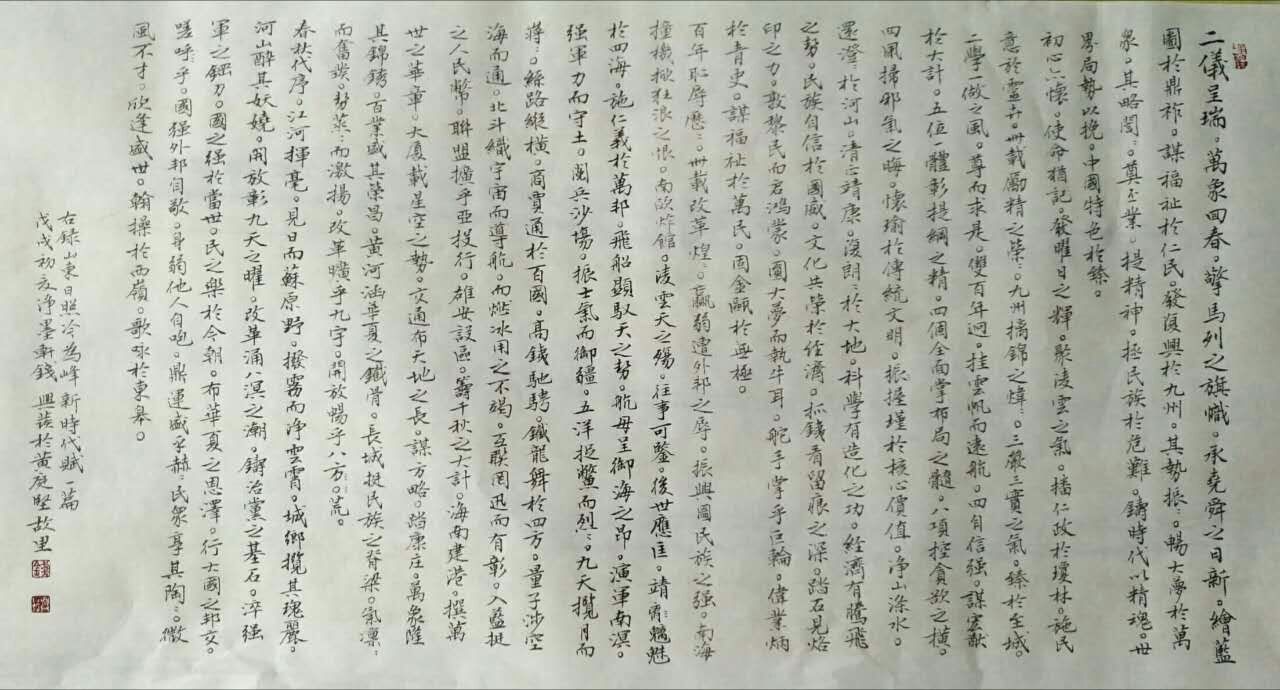 二儀呈瑞。萬象回春。擎馬列之旗幟。承堯舜之日新。繪藍
圖於鼎祚。謀福祉於仁民。發復興於九州。其勢振﹕。暢大夢於萬
象。其略誾﹕。奠丕業。提精神。拯民族於危難。鑄時代以精魂。世
界局勢以挽。中國特色於臻。
初心六懷。使命猶記。發曜日之輝。聚淩雲之氣。播仁政於瓊林。施民
意於靈卉。卌載勵精之榮﹕。九州摛錦之煒﹕。三嚴三實之氣。臻於至域。
二學一做之風。尊而求是。雙百年迥。挂雲帆而遠航。四自信強。謀宏猷
於大計。五位一體彰提綱之精。四個全面掌布局之髓。八項控貪欲之橫。
四風掃邪氣之晦。懷瑜於傳統文明。振瑾於核心價值。淨山滌水。
還澄﹕於河山。清心靖康。復朗﹕於大地。科學有造化之功。經濟有騰飛
之勢。民族自信於國威。文化共榮於經濟。抓錢看留痕之深。踏石見烙
印之力。敦黎民而启鴻蒙。圓大夢而執牛耳。舵手掌乎巨輪。偉業炳
於青史。謀福祉於萬民。固金甌於無極。
百年恥辱歷﹕。卌載改革煌﹕。羸弱遭外邦之辱。振興圖民族之強。南海
撞機掀狂浪之恨。南欧炸館。淩雲天之殤。往事可鑒。後世應匡。靖宵魍魅
於四海。施仁義於萬邦。飛船顯馭天之勢。航母呈御海之昂。演軍南溟。
强軍力而守土。閱兵沙場。振士氣而御疆。五洋捉鱉而烈﹕。九天攬月而
蔣﹕。絲路縱橫。商賈通於百國。高鉄馳騁。鐵龍舞於四方。量子涉空
海而通。北斗織宇宙而導航。而燃冰用之不竭。互联网迅而有彰。入藍挺
之人民幣。聯盟擴乎亞投行。雄安設區。籌千秋之大計。海南建港。撰萬
世之華章。大厦載星空之勢。交通布天地之長。謀方略。踏康庄。萬象隆
其錦錡。百業盛其榮昌。黄河涵華夏之鐵骨。長城挺民族之脊梁。氣凛﹕
而奮鋑。勢蒸﹕而激揚。改革曠乎九宇。開放暢乎八方。
春秋代序。江河揮毫。見日而蘇原野。撥霧而净雲霄。城鄉攬其瑰麗。
河山醉其妖嬈。開放彰九天之曜。改革涌八溟之潮。鑄治黨之基石。淬强
軍之錕刀。國之强於當世。民之樂於今朝。布華夏之恩澤。行大國之邦交。
嗟呼乎。國强外邦自敬。身弱他人自咆。鼎運盛乎赫﹕。民衆享其陶﹕。微
風不才。欣逢盛世。翰操於西嶺。歌咏於東皋。
右録山東日照冷為峰新時代賦一篇
戊戌初夏净墨軒錢興蔉於黄庭堅故里